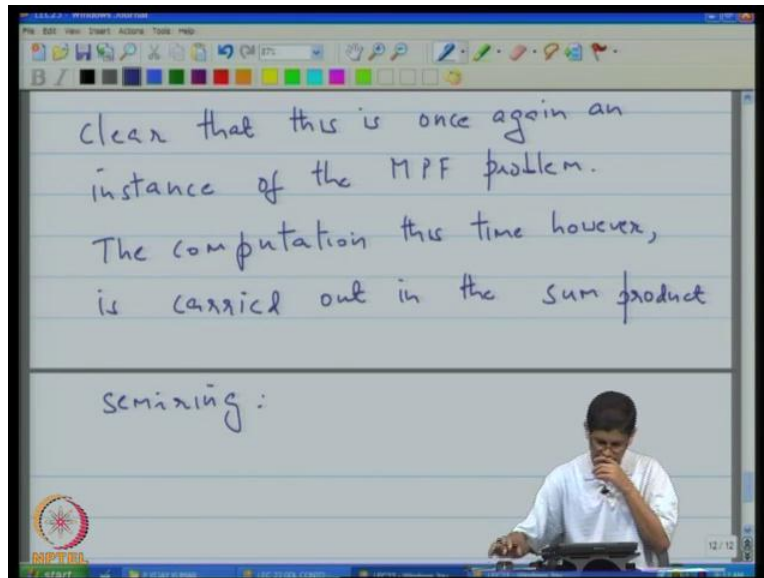 LEC23 - Windows Journal
File Edit View Insert Actions Tools Help
87%
B I
clear that this is once again an
instance of the MPF problem.
The computation this time however,
is carried out in the sum product
semiring :
12 / 12
NPTEL
start